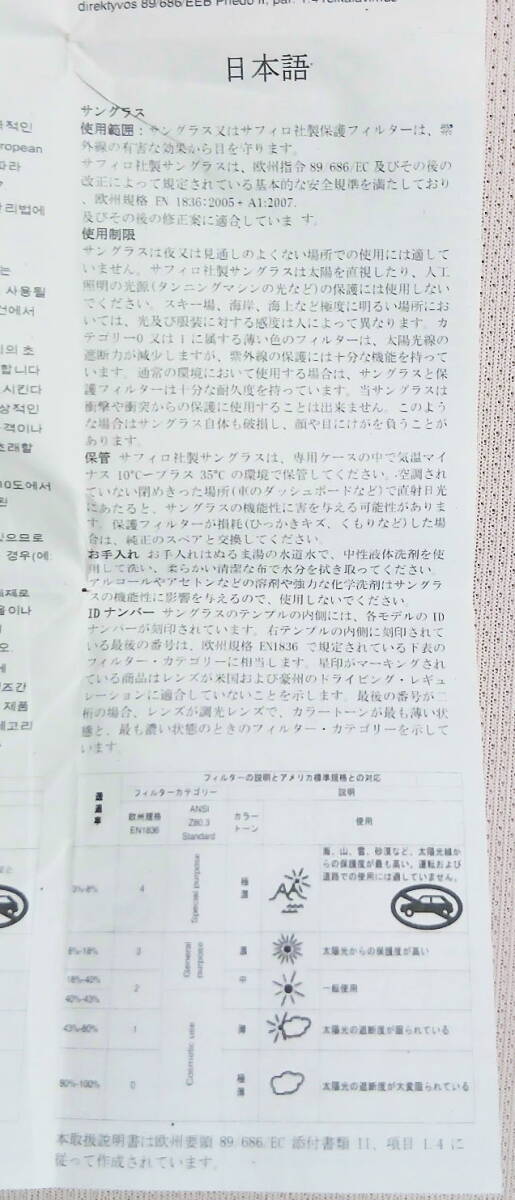 direktyvos 89/686/EEB Priedo II, par. 1.4 reikalavimus
日本語
サングラス
使用範囲：サングラス又はサフィロ社製保護フィルターは、紫
外線の有害な効果から目を守ります。
サフィロ社製サングラスは、欧州指令 89/686/EC 及びその後の
改正によって規定されている基本的な安全規準を満たしており
、欧州規格 EN 1836:2005+ A1:2007.
及びその後の修正案に適合しています.
使用制限
サングラスは夜又は見通しのよくない場所での使用には適して
いません。サフィロ社製サングラスは太陽を直視したり、人工
照明の光源(タンニングマシンの光など)の保護には使用しない
でください。スキー場、海岸、海上など極度に明るい場所にお
いては、光及び服装に対する感度は人によって異なります。カ
テゴリー0 又は 1 に属する薄い色のフィルターは、太陽光線の
遮断力が減少しますが、紫外線の保護には十分な機能を持って
います。通常の環境において使用する場合は、サングラスと保
護フィルターは十分な耐久度を持っています。当サングラスは
衝撃や衝突からの保護に使用することは出来ません。このよう
な場合はサングラス自体も破損し、顔や目にけがを負うことが
あります。
保管 サフィロ社製サングラスは、専用ケースの中で気温マイ
ナス 10℃ープラス 35℃ の環境で保管してください。空調され
ていない閉めきった場所(車のダッシュボードなど)で直射日光
にあたると、サングラスの機能性に害を与える可能性がありま
す。保護フィルターが損耗(ひっかきキズ、くもりなど)した場
合は、純正のスペアと交換してください。
お手入れ お手入れはぬるま湯の水道水で、中性液体洗剤を使
用して洗い、柔らかい清潔な布で水分を拭き取ってください。
アルコールやアセトンなどの溶剤や強力な化学洗剤はサングラ
スの機能性に影響を与えるので、使用しないでください。
ID ナンバー サングラスのテンプルの内側には、各モデルの ID
ナンバーが刻印されています。右テンプルの内側に刻印されて
いる最後の番号は、欧州規格 EN1836 で規定されている下表の
フィルター・カテゴリーに相当します。星印がマーキングされ
ている商品はレンズが米国および豪州のドライビング・レギュ
レーションに適合していないことを示します。最後の番号が二
桁の場合、レンズが調光レンズで、カラートーンが最も薄い状
態と、最も濃い状態のときのフィルター・カテゴリーを示して
います。
フィルターの説明とアメリカ標準規格との対応
透過率
フィルターカテゴリー
説明
欧州規格
EN1836
ANSI
Z80.3
Standard
カラー
トーン
使用
3%-8%
4
Special purpose
極濃
海、山、雪、砂漠など、太陽光線か
らの保護度が最も高い。運転および
道路での使用には適していません。
8%-18%
3
General purpose
濃
太陽光からの保護度が高い
18%-40%
40%-43%
2
中
一般使用
43%-80%
1
Cosmetic use
薄
太陽光の遮断度が限られている
80%-100%
0
極薄
太陽光の遮断度が大変限られている
本取扱説明書は欧州要領 89/686/EC 添付書類 II、項目 1.4 に
従って作成されています。